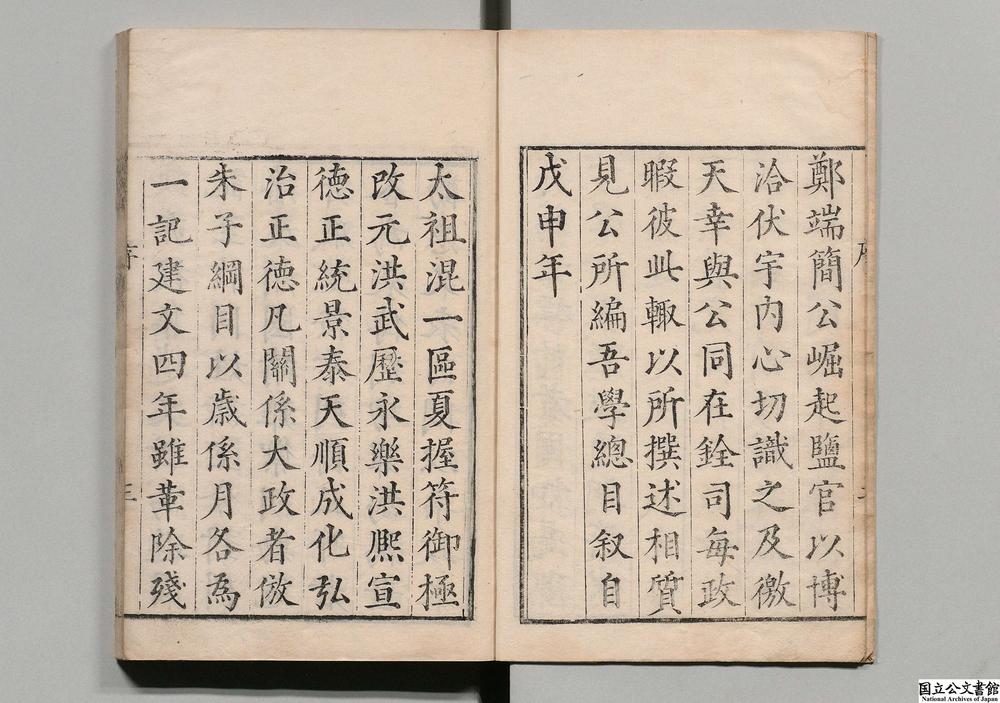 鄭端簡公崛起鹽官以博
洽伏宇內心切識之及徼
天幸與公同在銓司每政
暇彼此輙以所撰述相質
見公所編吾學總目叙自
戊申年
太祖混一區夏握符御極
改元洪武歷永樂洪熈宣
德正統景泰天順成化弘
治正德凡關係大政者倣
朱子綱目以歲係月各為
一記建文四年雖革除殘
序
三
国立公文書館
National Archives of Japan